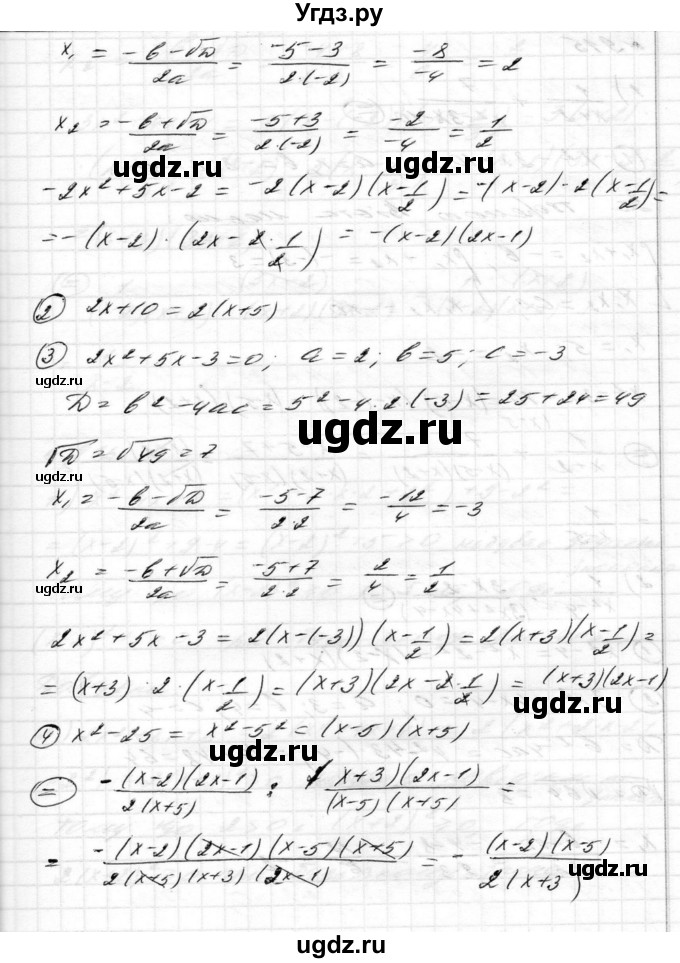 Угдз.ру
x₁ = (-b-√D)/2a = (-5-3)/(2·(-2)) = -8/-4 = 2
x₂ = (-b+√D)/2a = (-5+3)/(2·(-2)) = -2/-4 = 1/2
ugdz.ru ugdz.ru
-2x²+5x-2 = -2(x-2)(x-1/2) = -(x-2)·2(x-1/2) =
= -(x-2)·(2x-2·1/2) = -(x-2)(2x-1)
② 2x+10 = 2(x+5)
③ 2x²+5x-3=0; a=2; b=5; c=-3
ugdz.ru
D = b²-4ac = 5²-4·2·(-3) = 25+24 = 49
ugdz.ru
√D = √49 = 7
x₁ = (-b-√D)/2a = (-5-7)/(2·2) = -12/4 = -3
x₂ = (-b+√D)/2a = (-5+7)/(2·2) = 2/4 = 1/2
ugdz.ru
2x²+5x-3 = 2(x-(-3))(x-1/2) = 2(x+3)(x-1/2) =
= (x+3)·2·(x-1/2) = (x+3)(2x-2·1/2) = (x+3)(2x-1)
ugdz.ru
④ x²-25 = x²-5² = (x-5)(x+5)
ugdz.ru
⊜ -(x-2)(2x-1)/2(x+5) : (x+3)(2x-1)/(x-5)(x+5) =
= -(x-2)(2x-1)(x-5)(x+5)/2(x+5)(x+3)(2x-1) = - (x-2)(x-5)/2(x+3)
ugdz.ru ugdz.ru
ugdz.ru